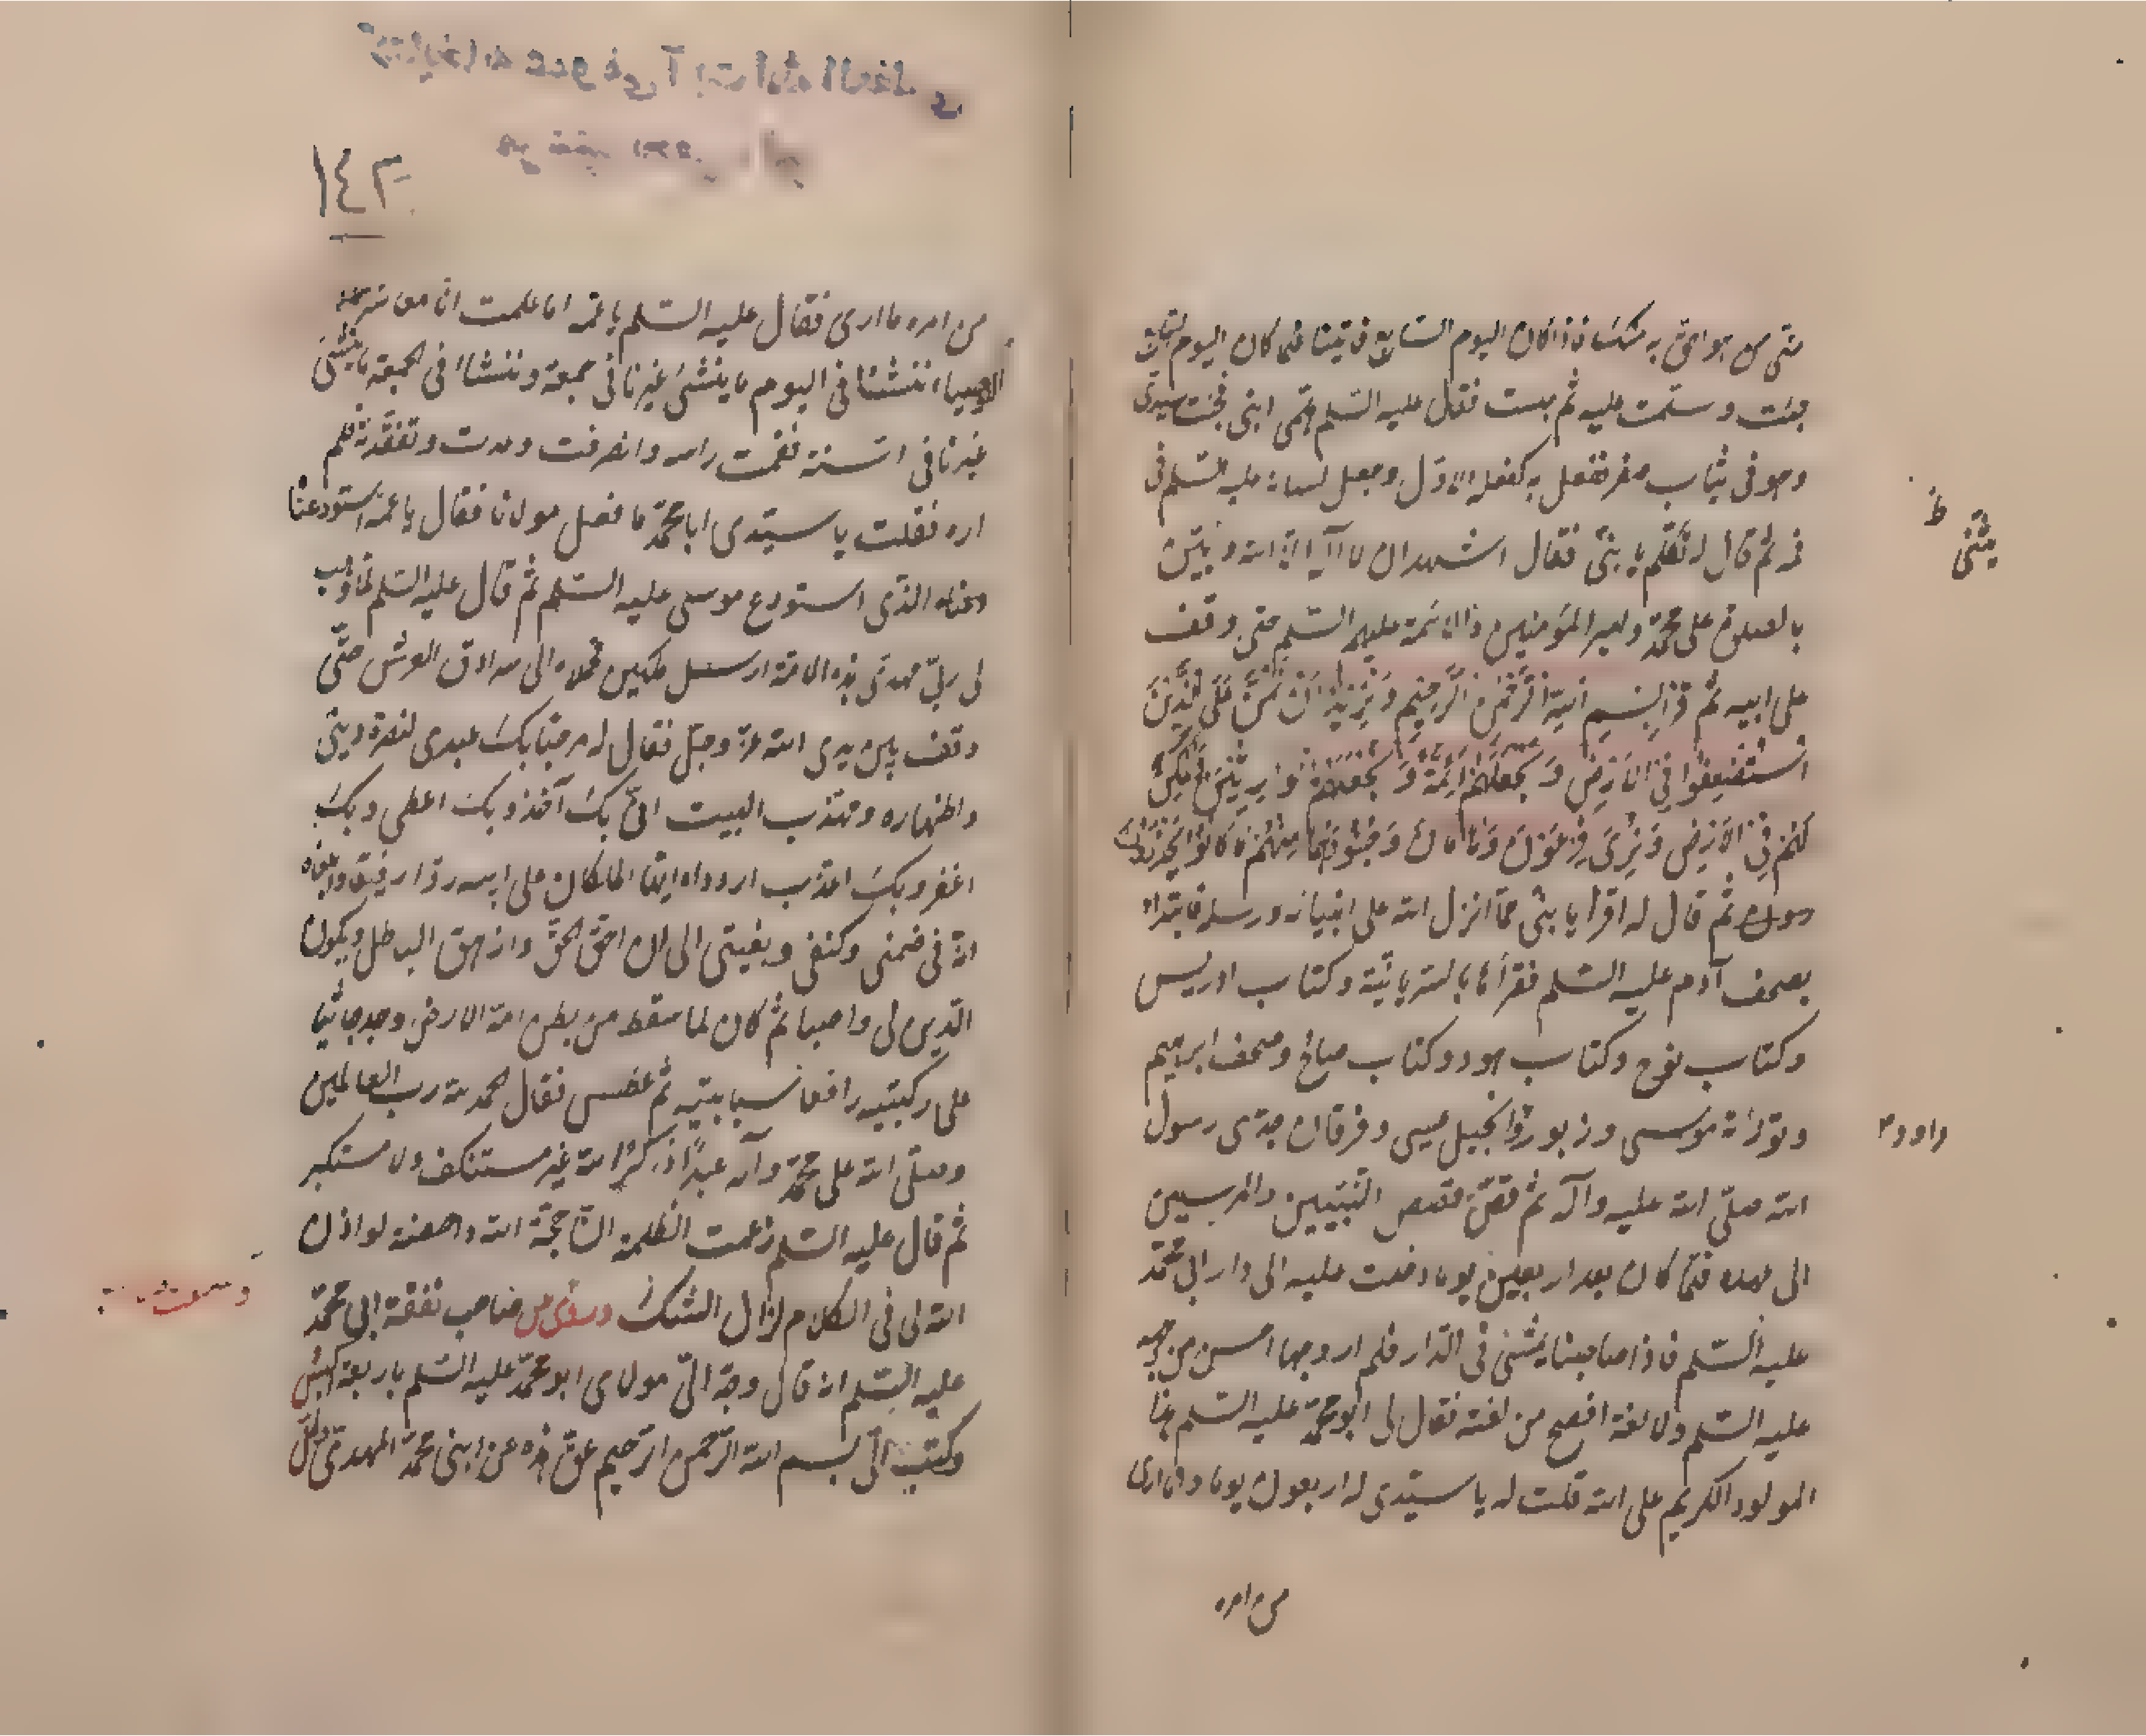 حتى من هو احق به منك فاذا كان اليوم السابع فاتينا فلما كان اليوم السابع
جئت وسلمت عليه ثم جلست فقال عليه السلم هلمى ابنى فجئت بسيدى
وهو فى ثياب صفر ففعل به كفعله الاول وجعل لسانه عليه السلم فى
فيه ثم قال له تكلم يا بنى فقال اشهد ان لا اله الا الله وثنى
بالصلوة على محمد وامير المؤمنين والائمة عليهم السلم حتى وقف
على ابيه ثم قرأ بسم الله الرحمن الرحيم ونريد ان نمن على الذين
استضعفوا فى الارض ونجعلهم ائمة ونجعلهم الوارثين ونمكن
لهم فى الارض ونرى فرعون وهامان وجنودهما منهم ما كانوا يحذرون
ثم قال له اقرا يا بنى مما انزل الله على انبيائه ورسله فابتداء
بصحف آدم عليه السلم فقرأها بالسريانية وكتاب ادريس
وكتاب نوح وكتاب هود وكتاب صالح وصحف ابرهيم
وتورية موسى وزبور وانجيل عيسى وفرقان جدى رسول
داود
الله صلى الله عليه وآله ثم قص قصص النبيين والمرسلين
الى عهده فلما كان بعد اربعين يوما دخلت عليه الى دار ابى محمد
عليه السلم فاذا صاحبنا يمشى فى الدار فلم ار وجها احسن من وجهه
يمشى ظ
عليه السلم ولا لغة افصح من لغته فقال لى ابو محمد عليه السلم هذا
المولود الكريم على الله قلت له يا سيدى له اربعون يوما وانا ارى
من امره
١٤٢
من امره ما ارى فقال عليه السلم يا عمه اما علمت انا معاشر
الاوصياء ننشئا فى اليوم ما ينشئ غيرنا فى جمعة وننشئا فى الجمعة ما ينشئ
غيرنا فى السنة فقمت راسه وانصرفت وعدت وتفقدته فلم
اره فقلت يا سيدى ابا محمد ما فعل مولانا فقال يا عمه استودعنا
الذى استودع موسى عليه السلم ثم قال عليه السلم لما وهب
لى ربى مهدى هذه الامة ارسل ملكين فحملاه الى سرادق العرش حتى
وقف بين يدى الله عز وجل فقال له مرحبا بك عبدى لنصرة دينى
واظهاره ومهدى البيت انى بك آخذ وبك اعطى وبك
اغفر وبك اعذب اردداه ايها الملكان على ابيه ردا رفيقا وابلغاه
انه فى ضمنى وكنفى وبعينى الى ان احق الحق وازهق الباطل ويكون
الدين لى واصبا ثم كان لما سقط من بطن امه الى الارض وجد جاثيا
على ركبتيه رافعا سبابتيه ثم عطس فقال الحمد لله رب العالمين
وصلى الله على محمد وآله عبدا ذاكرا لله غير مستنكف ولا مستكبر
ثم قال عليه السلم زعمت الظلمة ان حجة الله داحضة لو اذن
الله لى فى الكلام لزال الشك وروى من صاحب نفقة ابى محمد
عليه السلم انه قال وجه الى مولاى ابو محمد عليه السلم باربعة اكبش
وكتب الى بسم الله الرحمن الرحيم عق هذه عن ابنى محمد المهدى وكل